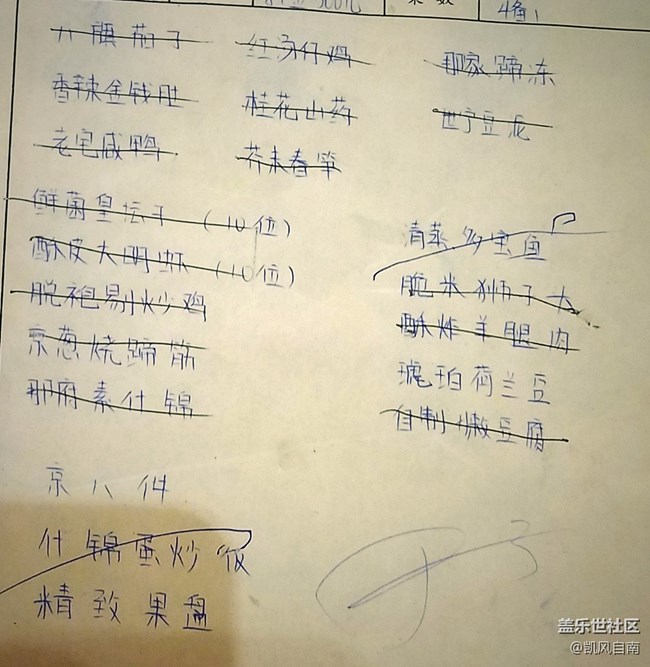 红汤仔鸡
那家蹄冻
香辣金钱肚
桂花山药
世宁豆泥
老宅咸鸭
芥末春笋
鲜菌皇坛子(10位)
清蒸多宝鱼
酥皮大明虾(10位)
脆米狮子头
脱袍剔炒鸡
酥炸羊腿肉
京葱烧蹄筋
琥珀荷兰豆
那府素什锦
自制嫩豆腐
京八件
什锦蛋炒饭
精致果盘
盖乐世社区
@凯风自南